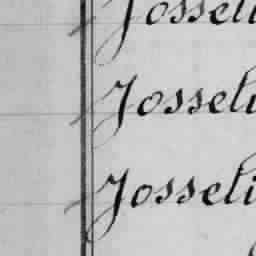 Josseli
Josseli
Josseli